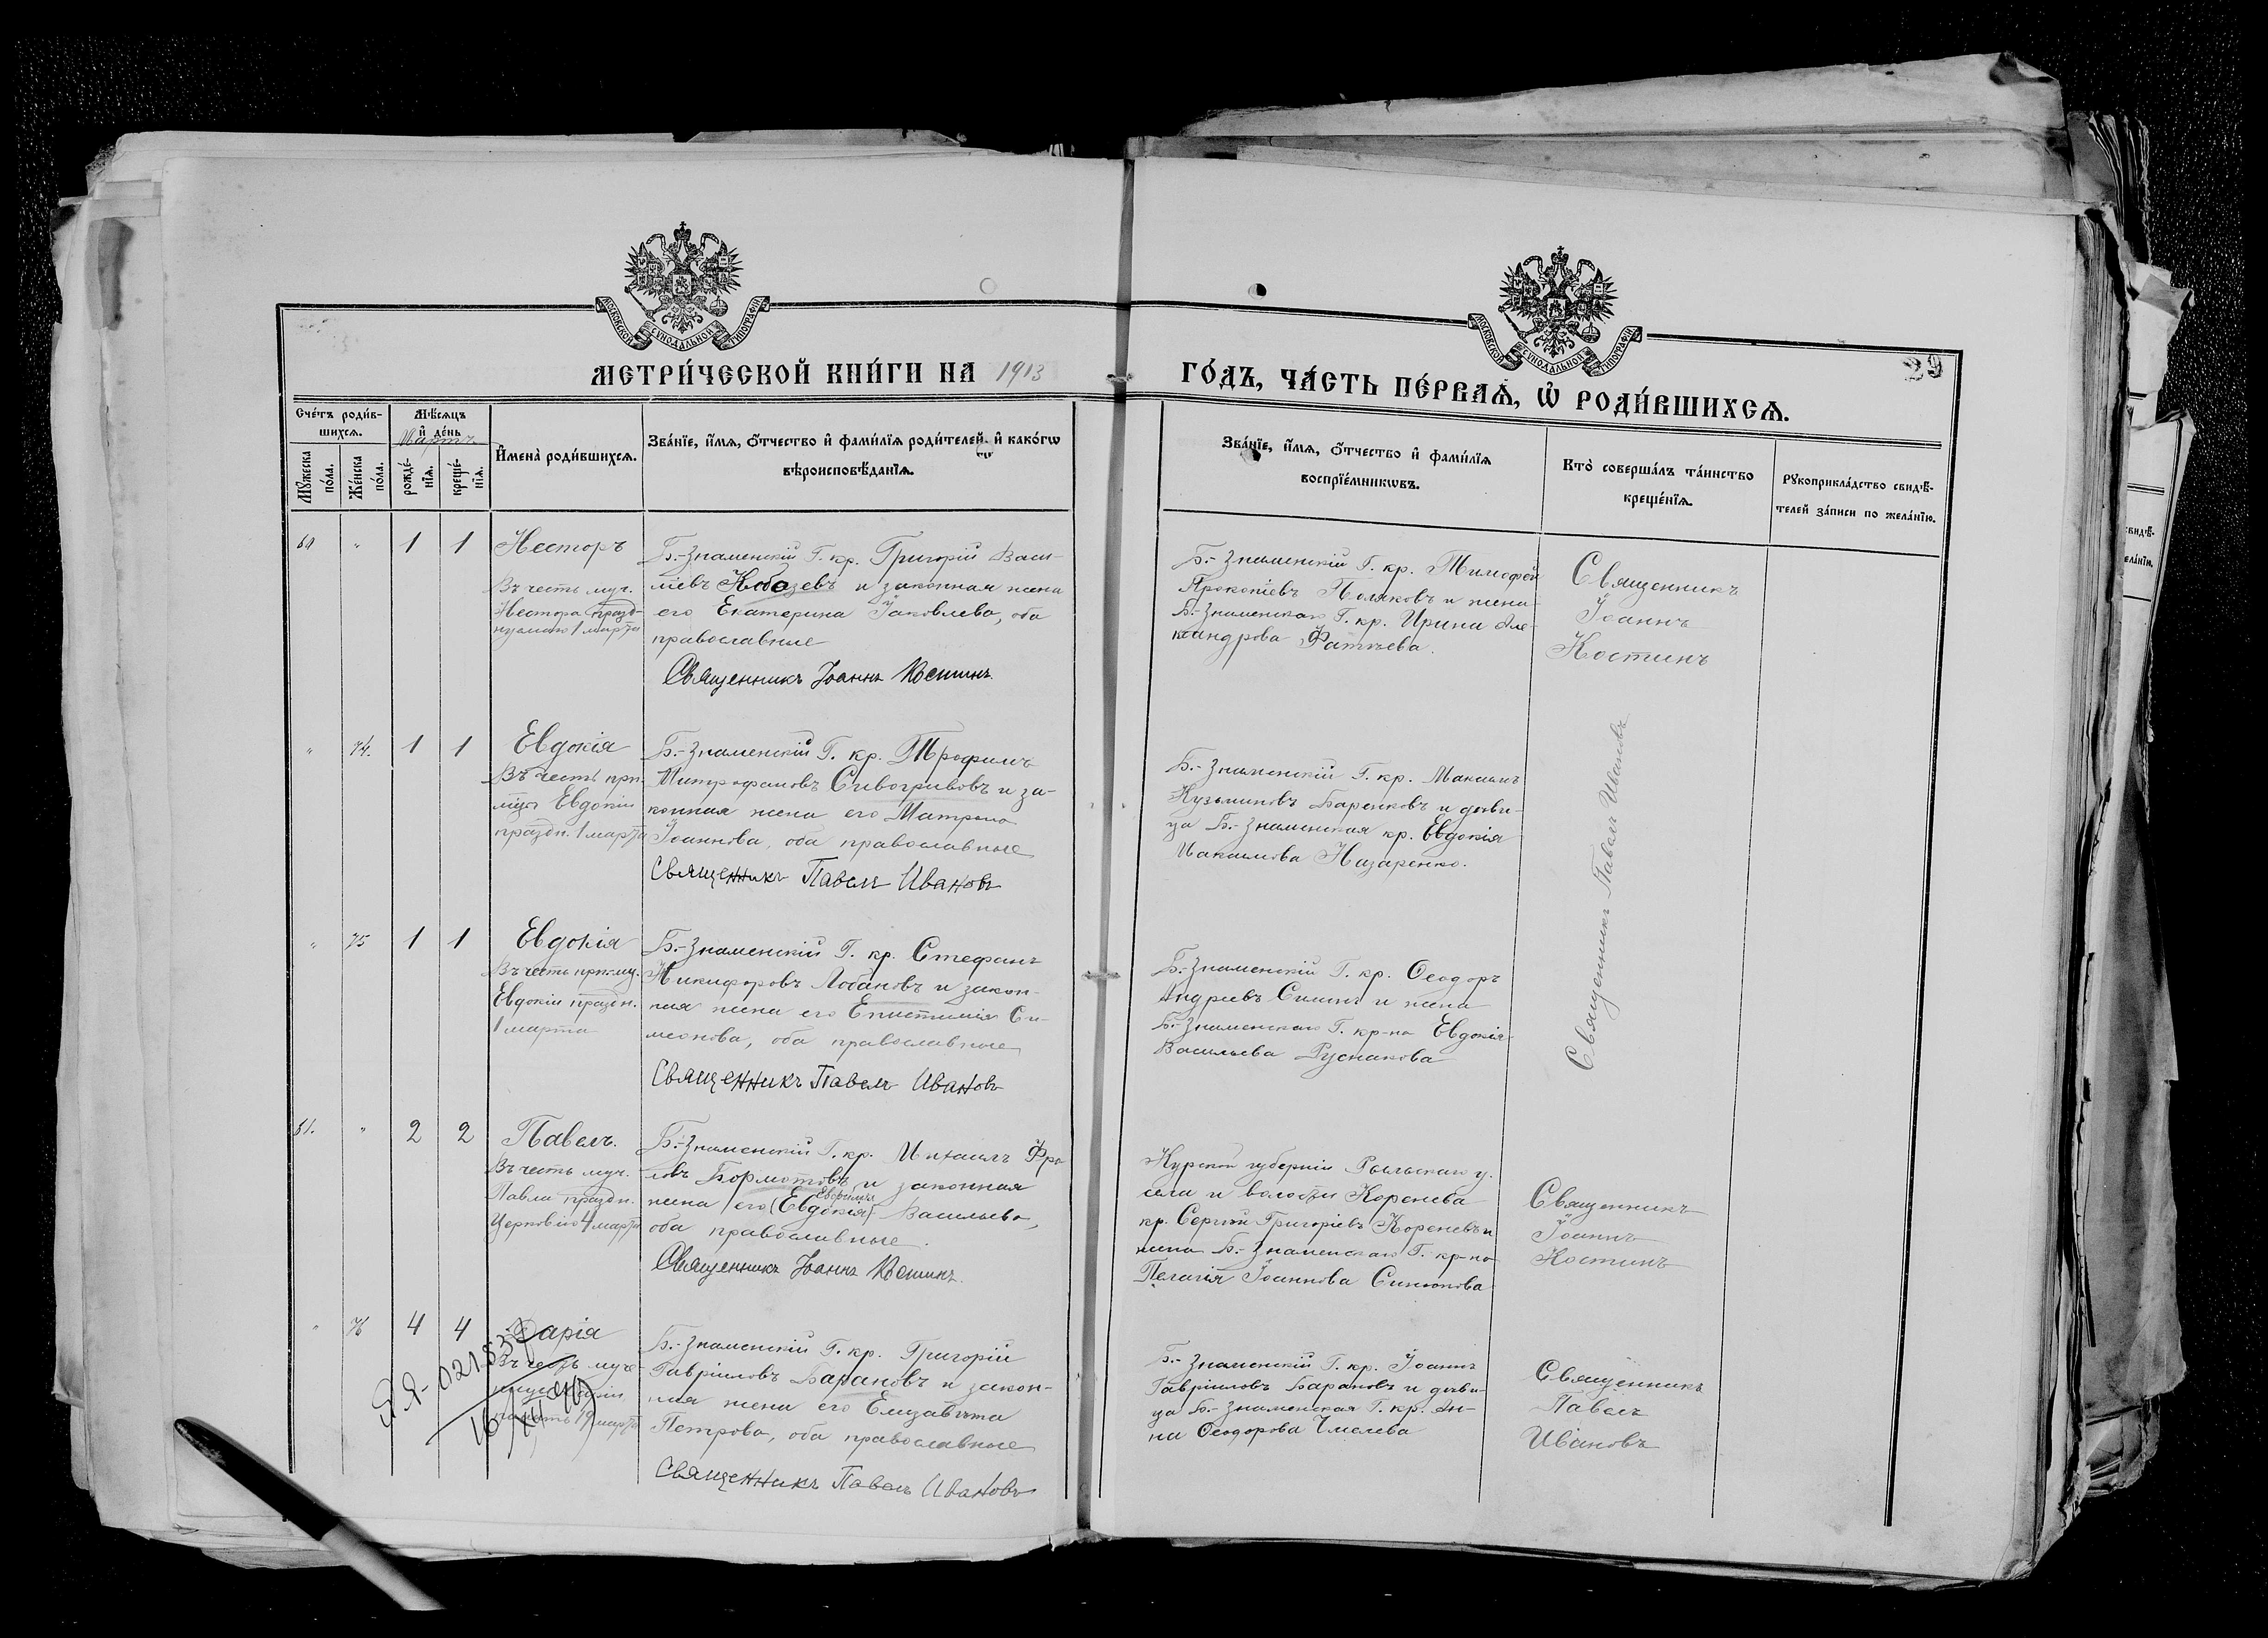 МОСКОВСКОЙ СѴНОДАЛЬНОЙ ТИПОГРАФІИ
МОСКОВСКОЙ СѴНОДАЛЬНОЙ ТИПОГРАФІИ
29
МЕТРИ́ЧЕСКОЙ КНИ́ГИ НА 1913
ГО́ДЪ, ЧА́СТЬ ПЕ́РВАѦ, Ѽ РОДИ́ВШИХСѦ.
Сче́тъ роди́в-
шихсѧ.
Мѣ́сѧцъ
и҆ де́нь
Мартъ
Мꙋ́жеска
по́ла.
Же́нска
по́ла.
рожде́-
нїѧ.
креще́-
нїѧ.
И҆мена̀ роди́вшихсѧ.
Зва́нїе, и҆́мѧ, ѻ҆́тчество и҆ фами́лїѧ роди́телей, и҆ како́гѡ
вѣроисповѣ́данїѧ.
Зва́нїе, и҆́мѧ, ѻ҆́тчество и҆ фами́лїѧ
воспрїе́мникѡвъ.
Кто̀ соверша́лъ та́инство
креще́нїѧ.
Рꙋкоприкла́дство свидѣ́-
телей за́писи по жела́нїю.
60 " 1 1 Несторъ
Въ честь муч.
Нестора празд-
нуемаго 1 марта
Б.-Знаменскій Г. кр. Григорій Васи-
ліевъ Кобозевъ и законная жена
его Екатерина Іаковлева, оба
православные
Священникъ Іоаннъ Костинъ.
Б.-Знаменскій Г. кр. Тимофей
Прокопіевъ Поляковъ и жена
Б.-Знаменскаго Г. кр. Ирина Але-
ксандрова
Священникъ
Іоаннъ
Костинъ
" 74. 1 1 Евдокія
Въ честь прп.
мцы Евдокіи
праздн. 1 марта
Б.-Знаменскій Г. кр. Трофимъ
Митрофановъ Сивогривовъ и за-
конная жена его Матрона
Іоаннова, оба православные
Священникъ Павелъ Ивановъ
Б.-Знаменскій Г. кр. Максимъ
Кузьминовъ Баренковъ и дѣви-
ца Б.-Знаменская кр. Евдокія
Максимова Назаренко.
Священникъ Павелъ Ивановъ
" 75 1 1 Евдокія
Въ честь прп. му.
Евдокіи праздн.
1 марта
Б.-Знаменскій Г. кр. Стефанъ
Никифоровъ Лобановъ и закон-
ная жена его Епистимія Си-
меонова, оба православные
Священникъ Павелъ Ивановъ
Б.-Знаменскій Г. кр. Ѳеодоръ
Андреевъ и жена
Б.-Знаменскаго Г. кр-на Евдокія
Васильева Руснакова
61. " 2 2 Павелъ.
Въ честь муч.
Павла праздн.
Церковію 4 марта
Б.-Знаменскій Г. кр. Михаилъ Фро-
ловъ Бормотовъ и законная
Евфимія
жена его (Евдокія) Васильева,
оба православные.
Священникъ Іоаннъ Костинъ.
Курской губерніи Рыльскаго у.
села и волости Коренева
кр. Сергѣй Григоріевъ Кореневъ и
жена Б.-Знаменскаго Г. кр-на
Пелагія Іоаннова Синюкова
Священникъ
Іоаннъ
Костинъ
" 76 4 4 Дарія
Въ честь муче-
ницы Даріи
память 19 марта
ЯЯ-021837
Б.-Знаменскій Г. кр. Григорій
Гавріиловъ Барановъ и закон-
ная жена его Елизавѣта
Петрова, оба православные
Священникъ Павелъ Ивановъ
Б.-Знаменскій Г. кр. Іоаннъ
Гавріиловъ Барановъ и дѣви-
ца Б.-Знаменская Г. кр. Ан-
на Ѳеодорова Чмелева
Священникъ
Павелъ
Ивановъ